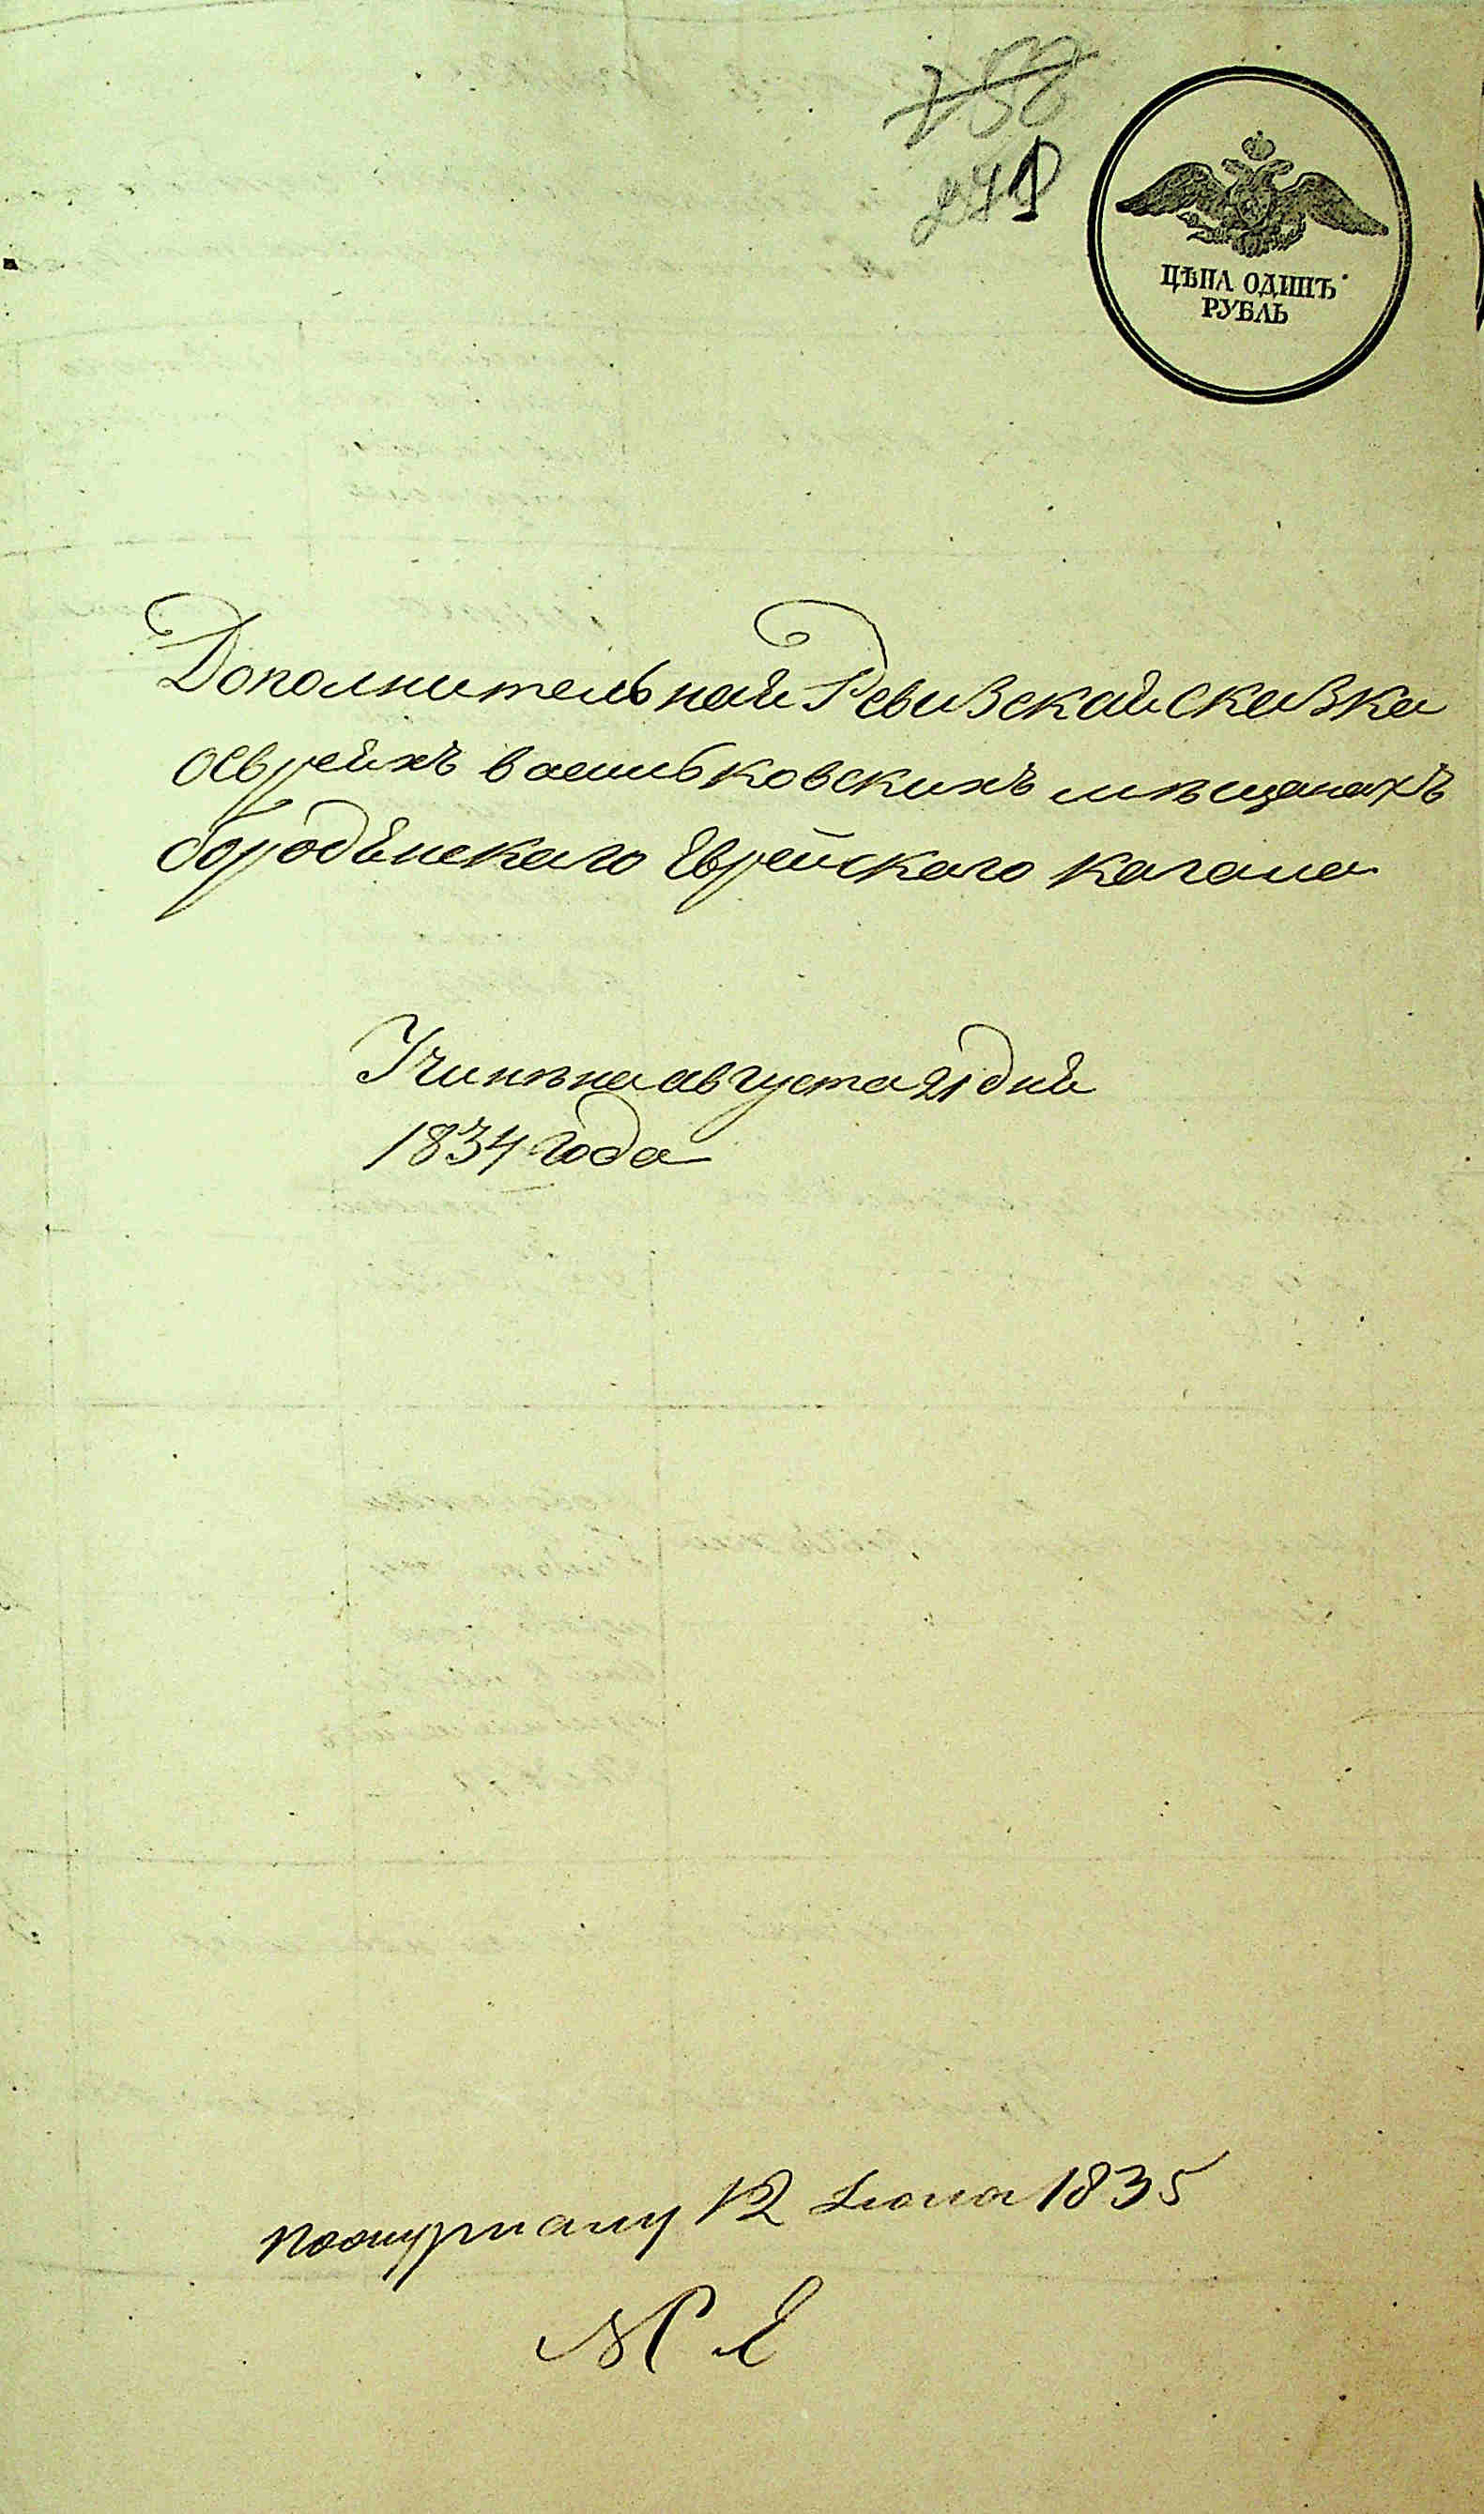 758
271
ЦѢНА ОДИНЪ
РУБЛЬ
Дополнительная Ревизская сказка
оевреяхъ васильковскихъ мѣщанахъ
бородянскаго Еврейскаго кагала
Учинѣна августа 21 дня
1834 года
по журналу 12 1835
№